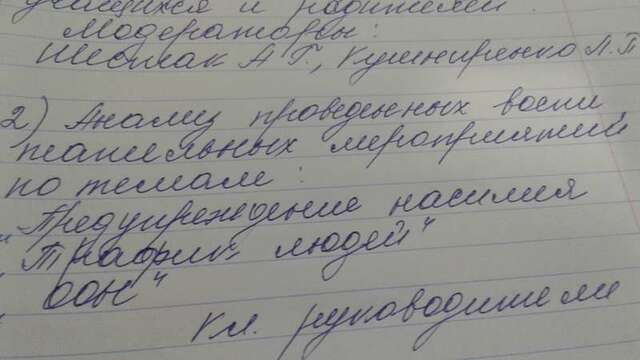 учащихся и родителей.
Модераторы:
Шестак А Г., Кушниренко Л. П
2) Анализ проведенных воспи
тательных мероприятий
по темам:
„Предупреждение насилия
„Трафик людей"
„ООН"
Кл. руководители